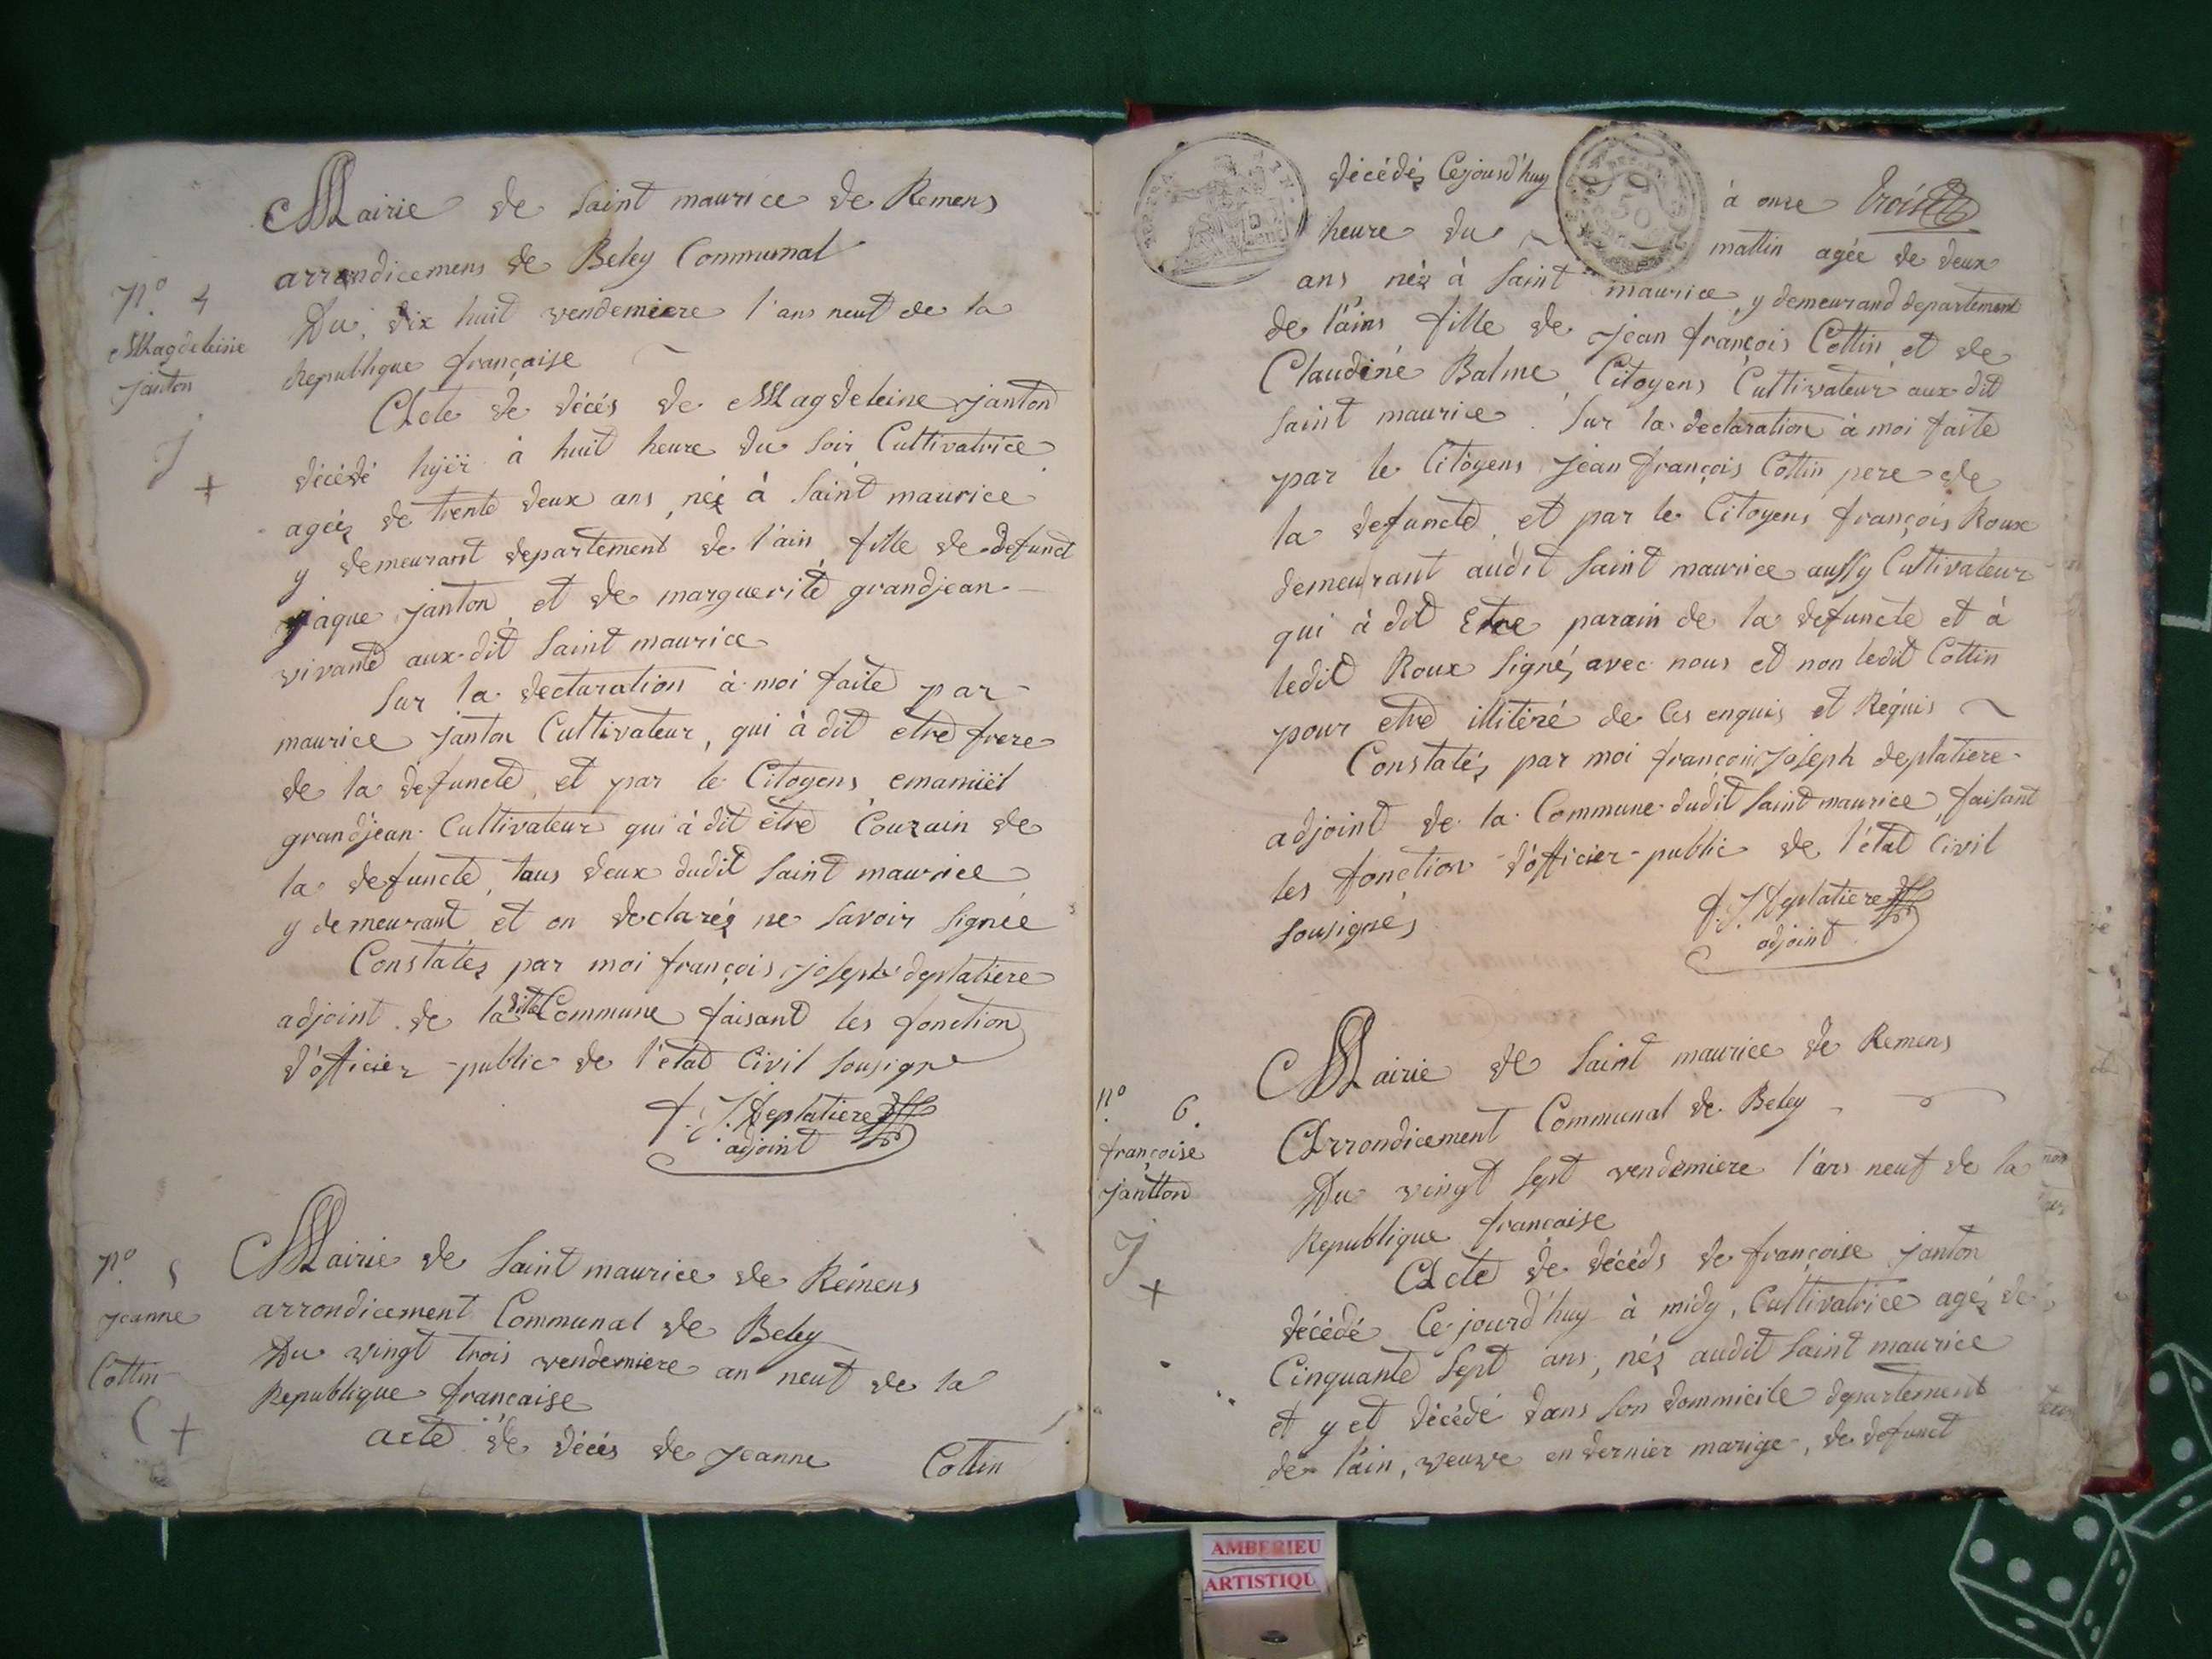 Mairie de Saint maurice de Remens
arrondicemens de Beley Communal
n.º 4
Magdeleine
janton
J +
Du, dix huit vendemiere l'ans neuf de la
Republique française
Acte de décés de Magdeleine janton
décédé hyër à huit heure du soir Cultivatrice
ageéz de trente deux ans, néz à Saint maurice
y demeurant departement de l'ain, fille de defunct
jaque janton, et de marguerite grandjean
vivante aux dit Saint maurice
Sur la declaration à moi faite par
maurice janton Cultivateur, qui à dit etre frere
de la defuncte, et par le Citoyens emanuël
grandjean Cultivateur qui à dit être Couzain de
la defuncte, tous deux dudit Saint maurice
y demeurant et on declaréz ne savoir signée
Constatéz par moi françois joseph deplatiere
adjoint de ladite Commune faisant les fonction
d'officier public de l'etat Civil sousigne
f. J. Deplatiere
adjoint
n.º 5
jeanne
Cottin
C +
Mairie de Saint maurice de Rémens
arrondicement Communal de Beley
Du vingt trois vendemiere an neuf de la
Republique française
acte de décés de jeanne Cottin
décédéz Cejourd'huy à onze trois
heure du mattin agée de deux
ans néz à Saint maurice, y demeurand departement
de l'ains fille de jean françois Cottin et de
Claudine Balme, Citoyens Cultivateur aux dit
Saint maurice. Sur la declaration à moi faite
par le Citoyens jean françois Cottin pere de
la defuncte, et par le Citoyens françois Roux
demeurant audit Saint maurice aussy Cultivateur
qui à dit Etre parain de la defuncte et à
ledit Roux signéz avec nous et non ledit Cottin
pour etre illitéré de Ces enquis et Réquis
Constatéz par moi françois joseph deplatiere
adjoint de la Commune dudit Saint maurice, faisant
les fonction d'officier public de l'état Civil
sousignés
f. J. Deplatiere
adjoint
n.º 6.
françoise
jantton
J +
Mairie de Saint maurice de Remens
Arrondicement Communal de Beley
Du vingt Sept vendemiere l'ans neuf de la
Republique francaise
Acte de décéds de françoise janton
décédé Ce jourd'huy à midy, Cultivatrice agéz de
Cinquante Sept ans, néz audit Saint maurice
et y et décédé dans son dommicile departement
de l'ain, veuve en dernier marige, de defunct
AMBERIEU
ARTISTIQU